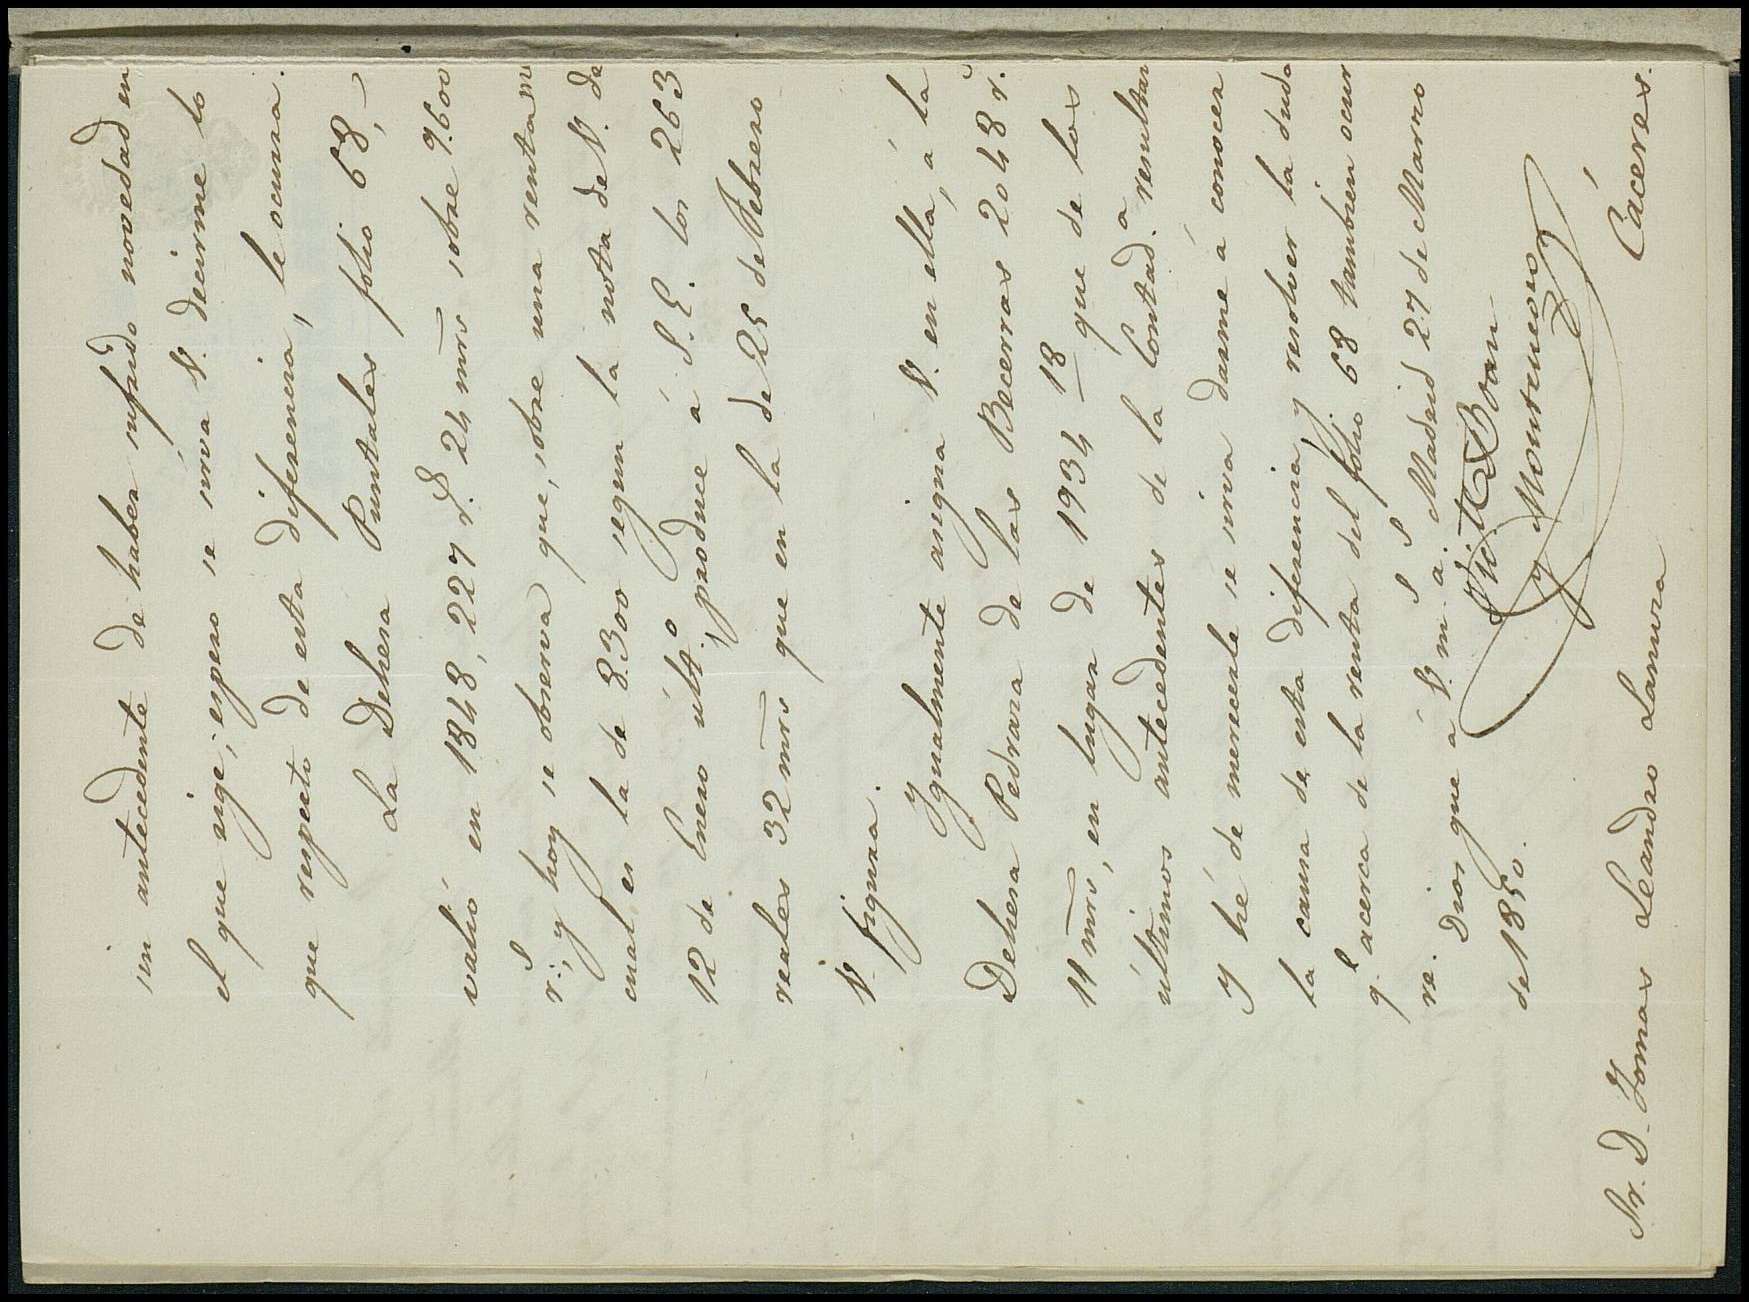 sin antecedente de haber sufrido novedad en
el que rige; espero se sirva V. decirme lo
que respecto de esta diferencia, le ocurra.
La Dehesa Puntales folio 68,-
valió en 1848, 227 rs. 24 mrs sobre 9.600
rs.; y hoy se observa que, sobre una renta me
cual es la de 8.300 segun la nota de V. de
12 de Enero ulto., produce á S.E. los 263
reales 32 mrs que en la de 25 de Febrero
V. figura.
Ygualmente asigna V. en ella, á la
Dehesa Pedraza de las Becerras 2048 rs.
11 mrs, en lugar de 1934 18 que de los
últimos antecedentes de la Contada. resultan
Y hé de merecerle se sirva darme á conocer
la causa de esta diferencia y resolver la duda
ql. acerca de la renta del folio 68 tambien ocur
re. Dios gue á V. ms as. Madrid 27 de Marzo
de 1850.
y Montenegro
Sr. D. Tomas Leandro Lanuza Cáceres.